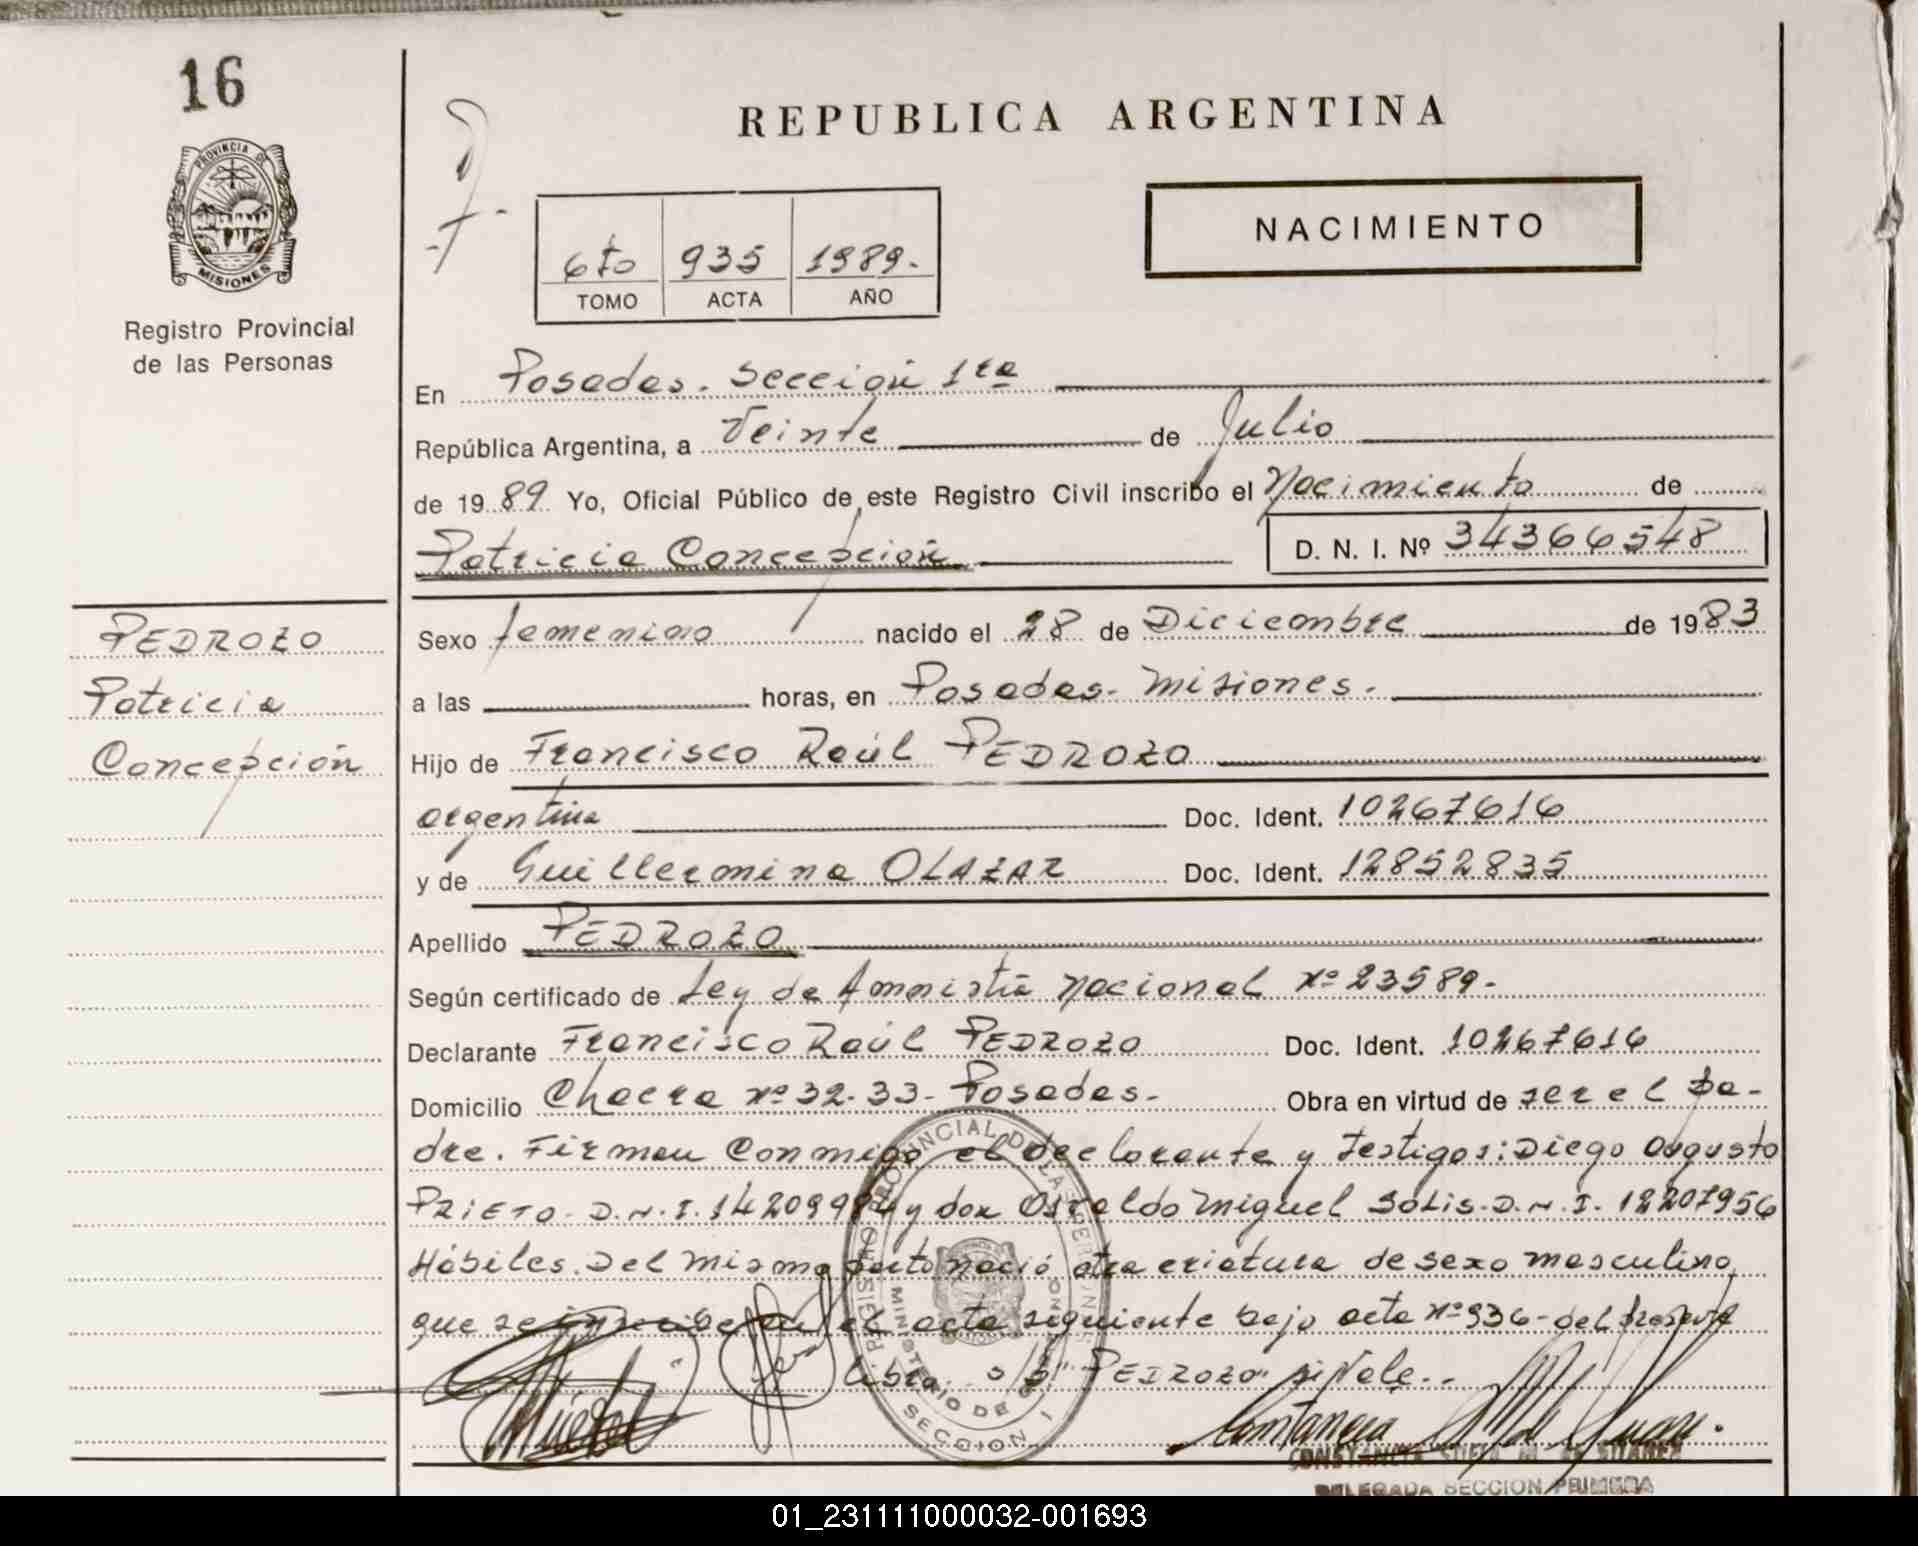 16
REPUBLICA ARGENTINA
PROVINCIA DE
MISIONES
Registro Provincial
de las Personas
6to 935 1989.-
TOMO ACTA AÑO
NACIMIENTO
En Posadas. Sección 1ra
República Argentina, a Veinte de Julio
de 1989 Yo, Oficial Público de este Registro Civil inscribo el Nacimiento de
Patricia Concepción D. N. I. Nº 34366548
PEDROZO
Patricia
Concepción
Sexo femenino nacido el 28 de Diciembre de 1983
a las horas, en Posadas- Misiones.-
Hijo de Francisco Raúl PEDROZO
argentina Doc. Ident. 10267616
y de Guillermina OLAZAR Doc. Ident. 12852835
Apellido PEDROZO
Según certificado de Ley de Amnistía Nacional Nº 23589.-
Declarante Francisco Raúl PEDROZO Doc. Ident. 10267616
Domicilio Chacra nº 32-33- Posadas.- Obra en virtud de ser el pa-
dre. Firman Conmigo el declarante y testigos: Diego Augusto
PRIETO- D.N.I. 14209984 y don Osvaldo Miguel SOLIS- D.N.I. 12207956
Hábiles. Del mismo parto nació otra criatura de sexo masculino,
que se inscribe en el acta siguiente bajo acta nº 936- del presente
libro. s/b "PEDROZO" si Vale.-
REGISTRO PROVINCIAL DE LAS PERSONAS
MINISTERIO DE GOBIERNO
SECCION 1
DELEGADA SECCION PRIMERA
01_231111000032-001693